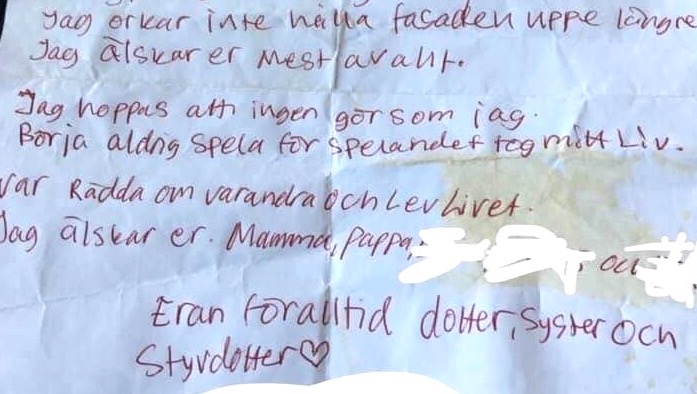 Jag orkar inte hålla fasaden uppe längre
Jag älskar er mest av allt.
Jag hoppas att ingen gör som jag.
Börja aldrig spela för spelandet tog mitt Liv.
var Rädda om varandra och Lev Livet.
Jag älskar er. Mamma, pappa, och
Eran föralltid dotter, syster och
Styvdotter♡